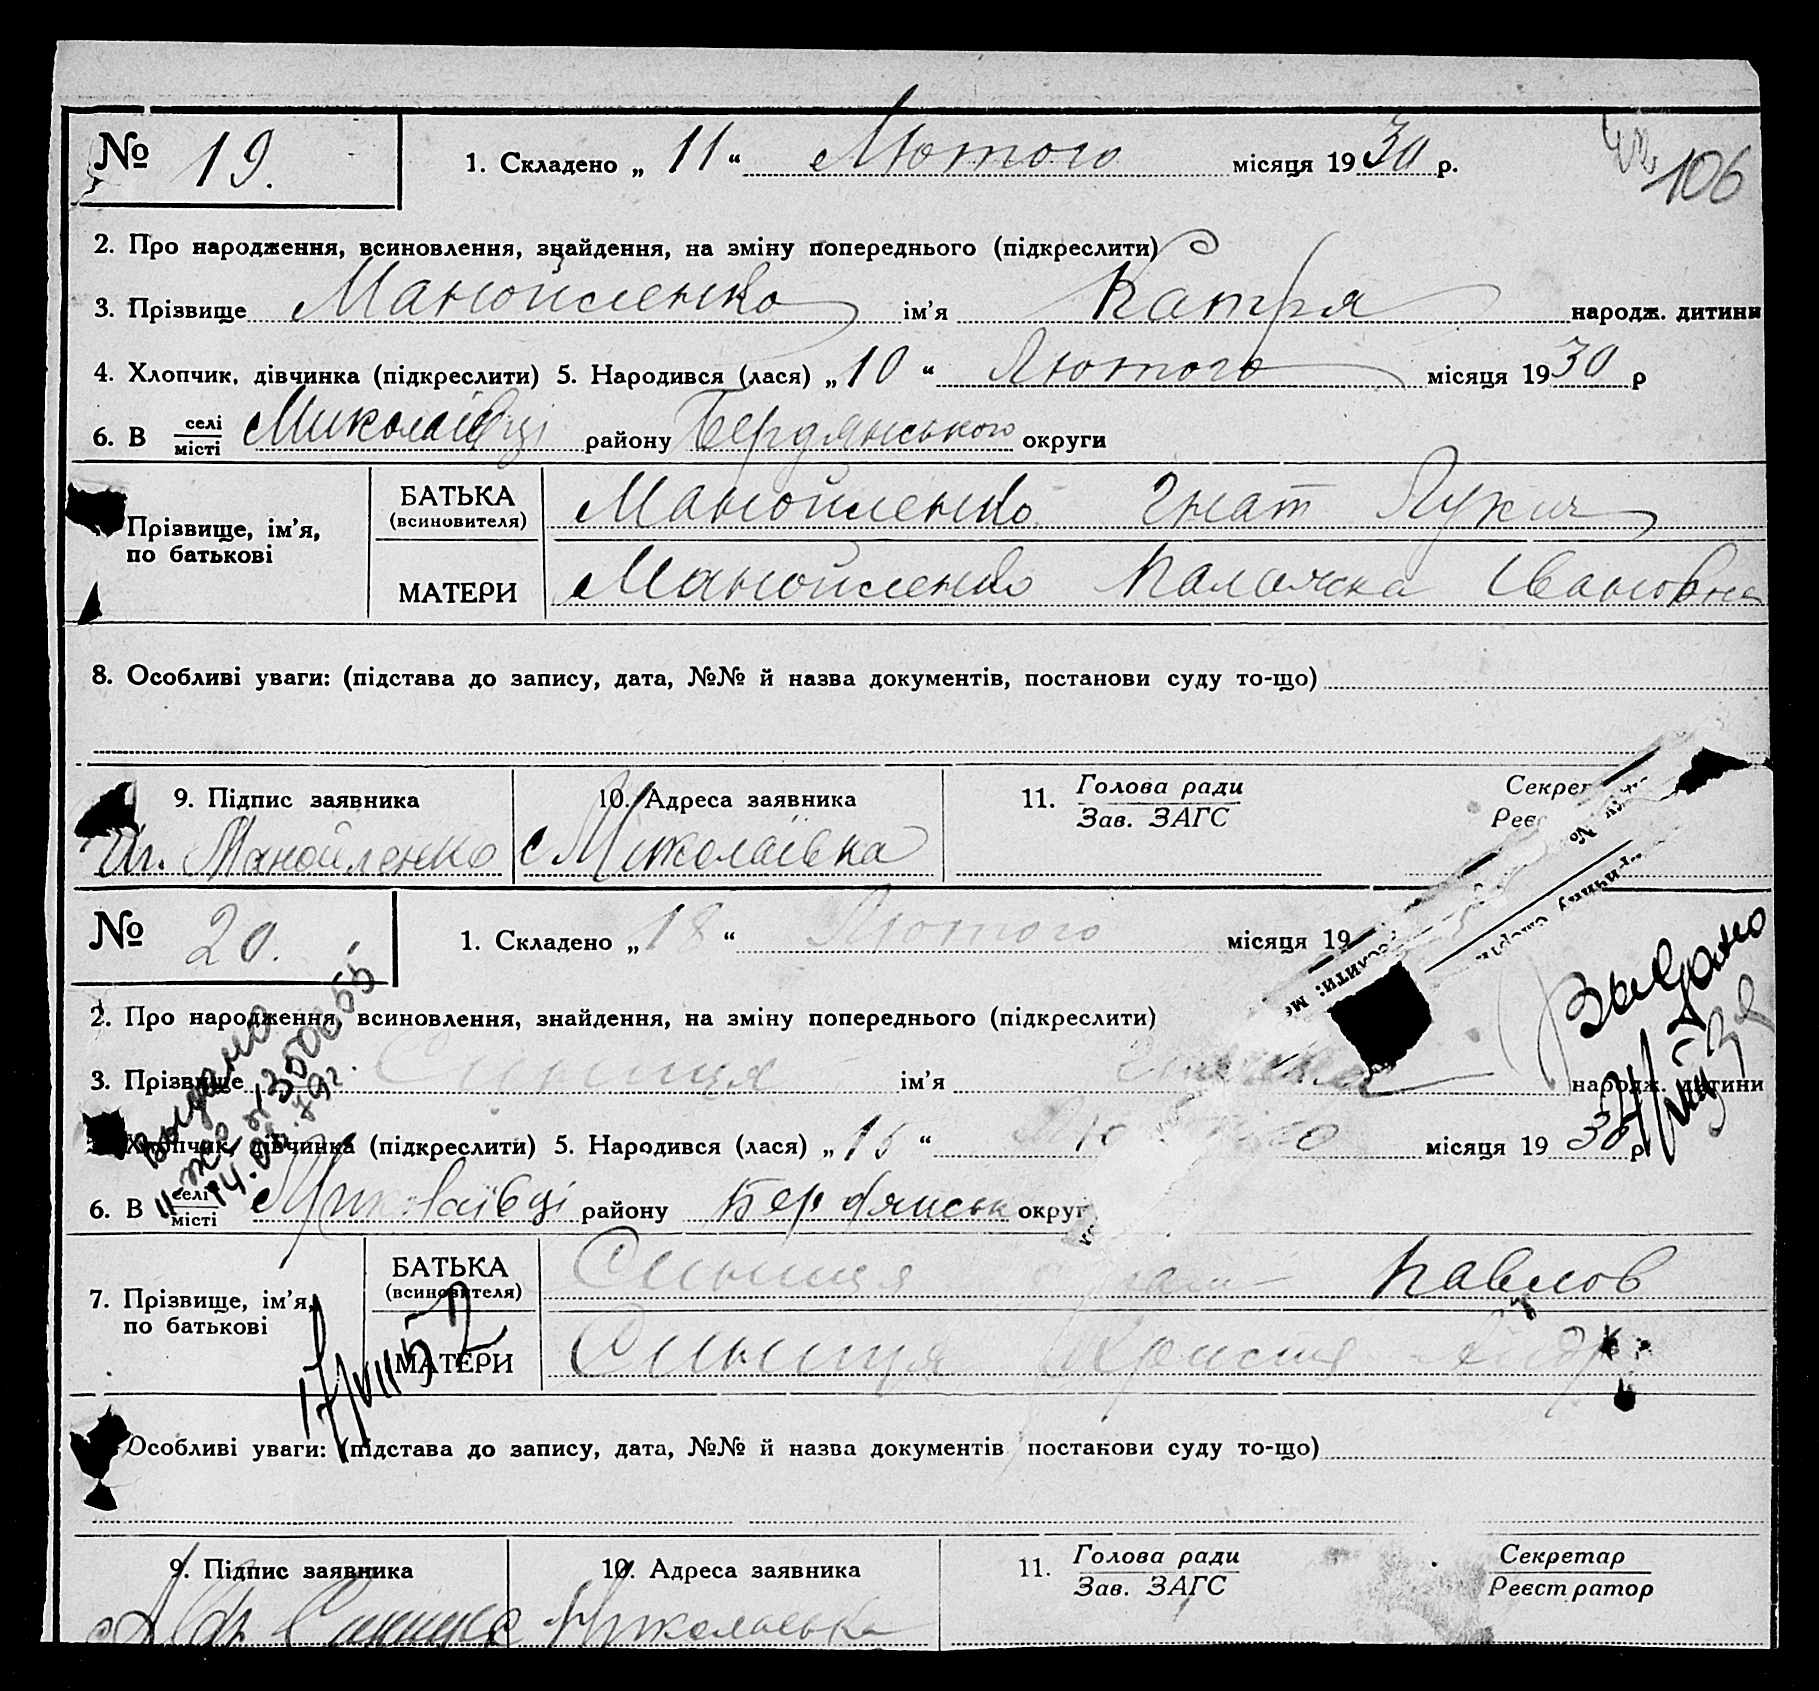 № 19.
1. Складено „ 11 “ Лютого місяця 1930 р.
106
2. Про народження, всиновлення, знайдення, на зміну попереднього (підкреслити)
3. Прізвище Манойленко ім’я Катря народж. дитини
4. Хлопчик, дівчинка (підкреслити) 5. Народився (лася) „ 10 “ Лютого місяця 1930 р
6. В селі/місті Миколаївці району Бердянського округи
Прізвище, ім’я, по батькові
БАТЬКА (всиновителя) Манойленко Гнат Лукич
МАТЕРИ Манойленко Палажка Івановна
8. Особливі уваги: (підстава до запису, дата, №№ й назва документів, постанови суду то-що)
9. Підпис заявника 10. Адреса заявника 11. Голова ради
Зав. ЗАГС
Манойленко с Миколаївка
№ 20.
1. Складено „ 18 “ Лютого місяця 19
Выдано
2. Про народження, всиновлення, знайдення, на зміну попереднього (підкреслити)
3. Прізвище Синиця ім’я народж. дитини
Выдано
Хлопчик, дівчинка (підкреслити) 5. Народився (лася) „ 15 “ місяця 1930 р
6. В селі/місті Миколаївці району Бердянськ округ
7. Прізвище, ім’я, по батькові
БАТЬКА (всиновителя) Синиця Павлов
МАТЕРИ Синиця
Особливі уваги: (підстава до запису, дата, №№ й назва документів постанови суду то-що)
9. Підпис заявника 10. Адреса заявника 11. Голова ради Секретар
Зав. ЗАГС Реєстратор
Синиця Миколаевка